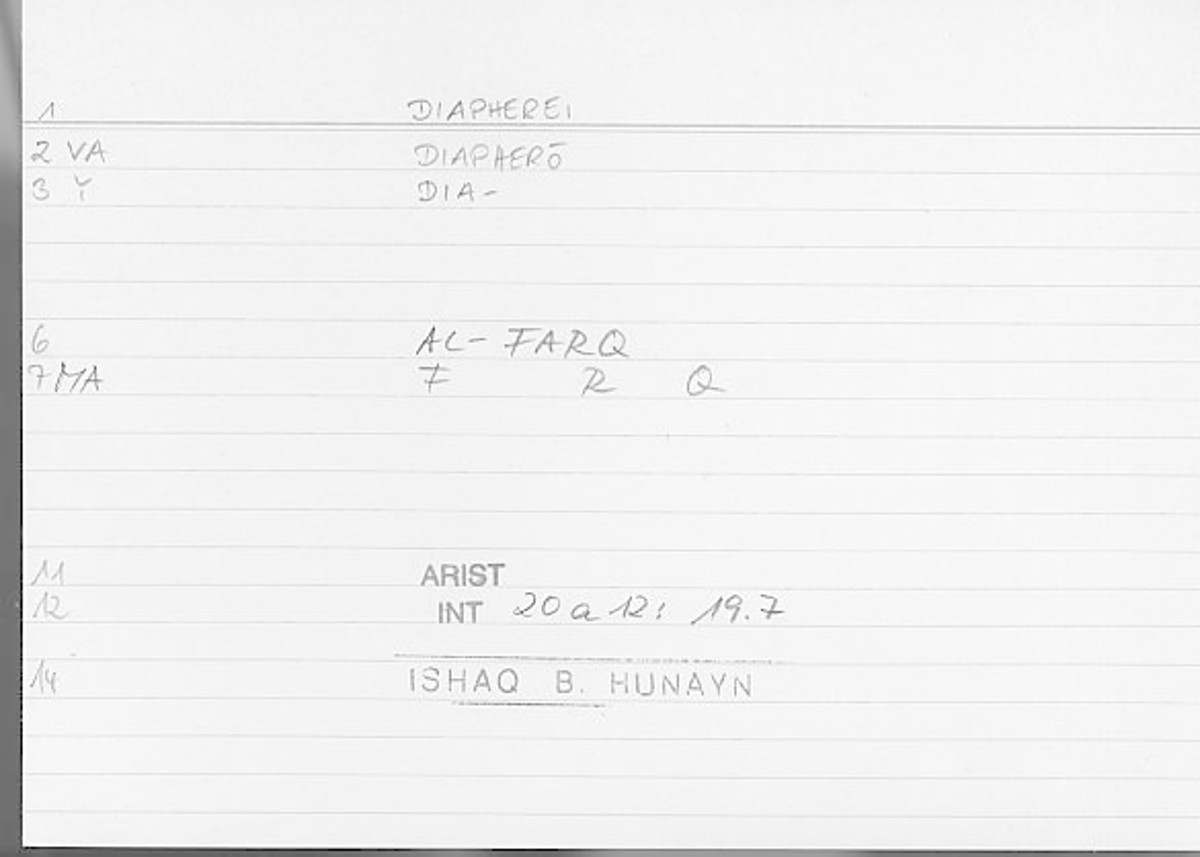 1 DIAPHEREI
2 VA DIAPHERŌ
3 Y DIA-
6 AL-FARQ
7 MA F R Q
11 ARIST
12 INT 20 a 12: 19.7
14 ISHAQ B. HUNAYN